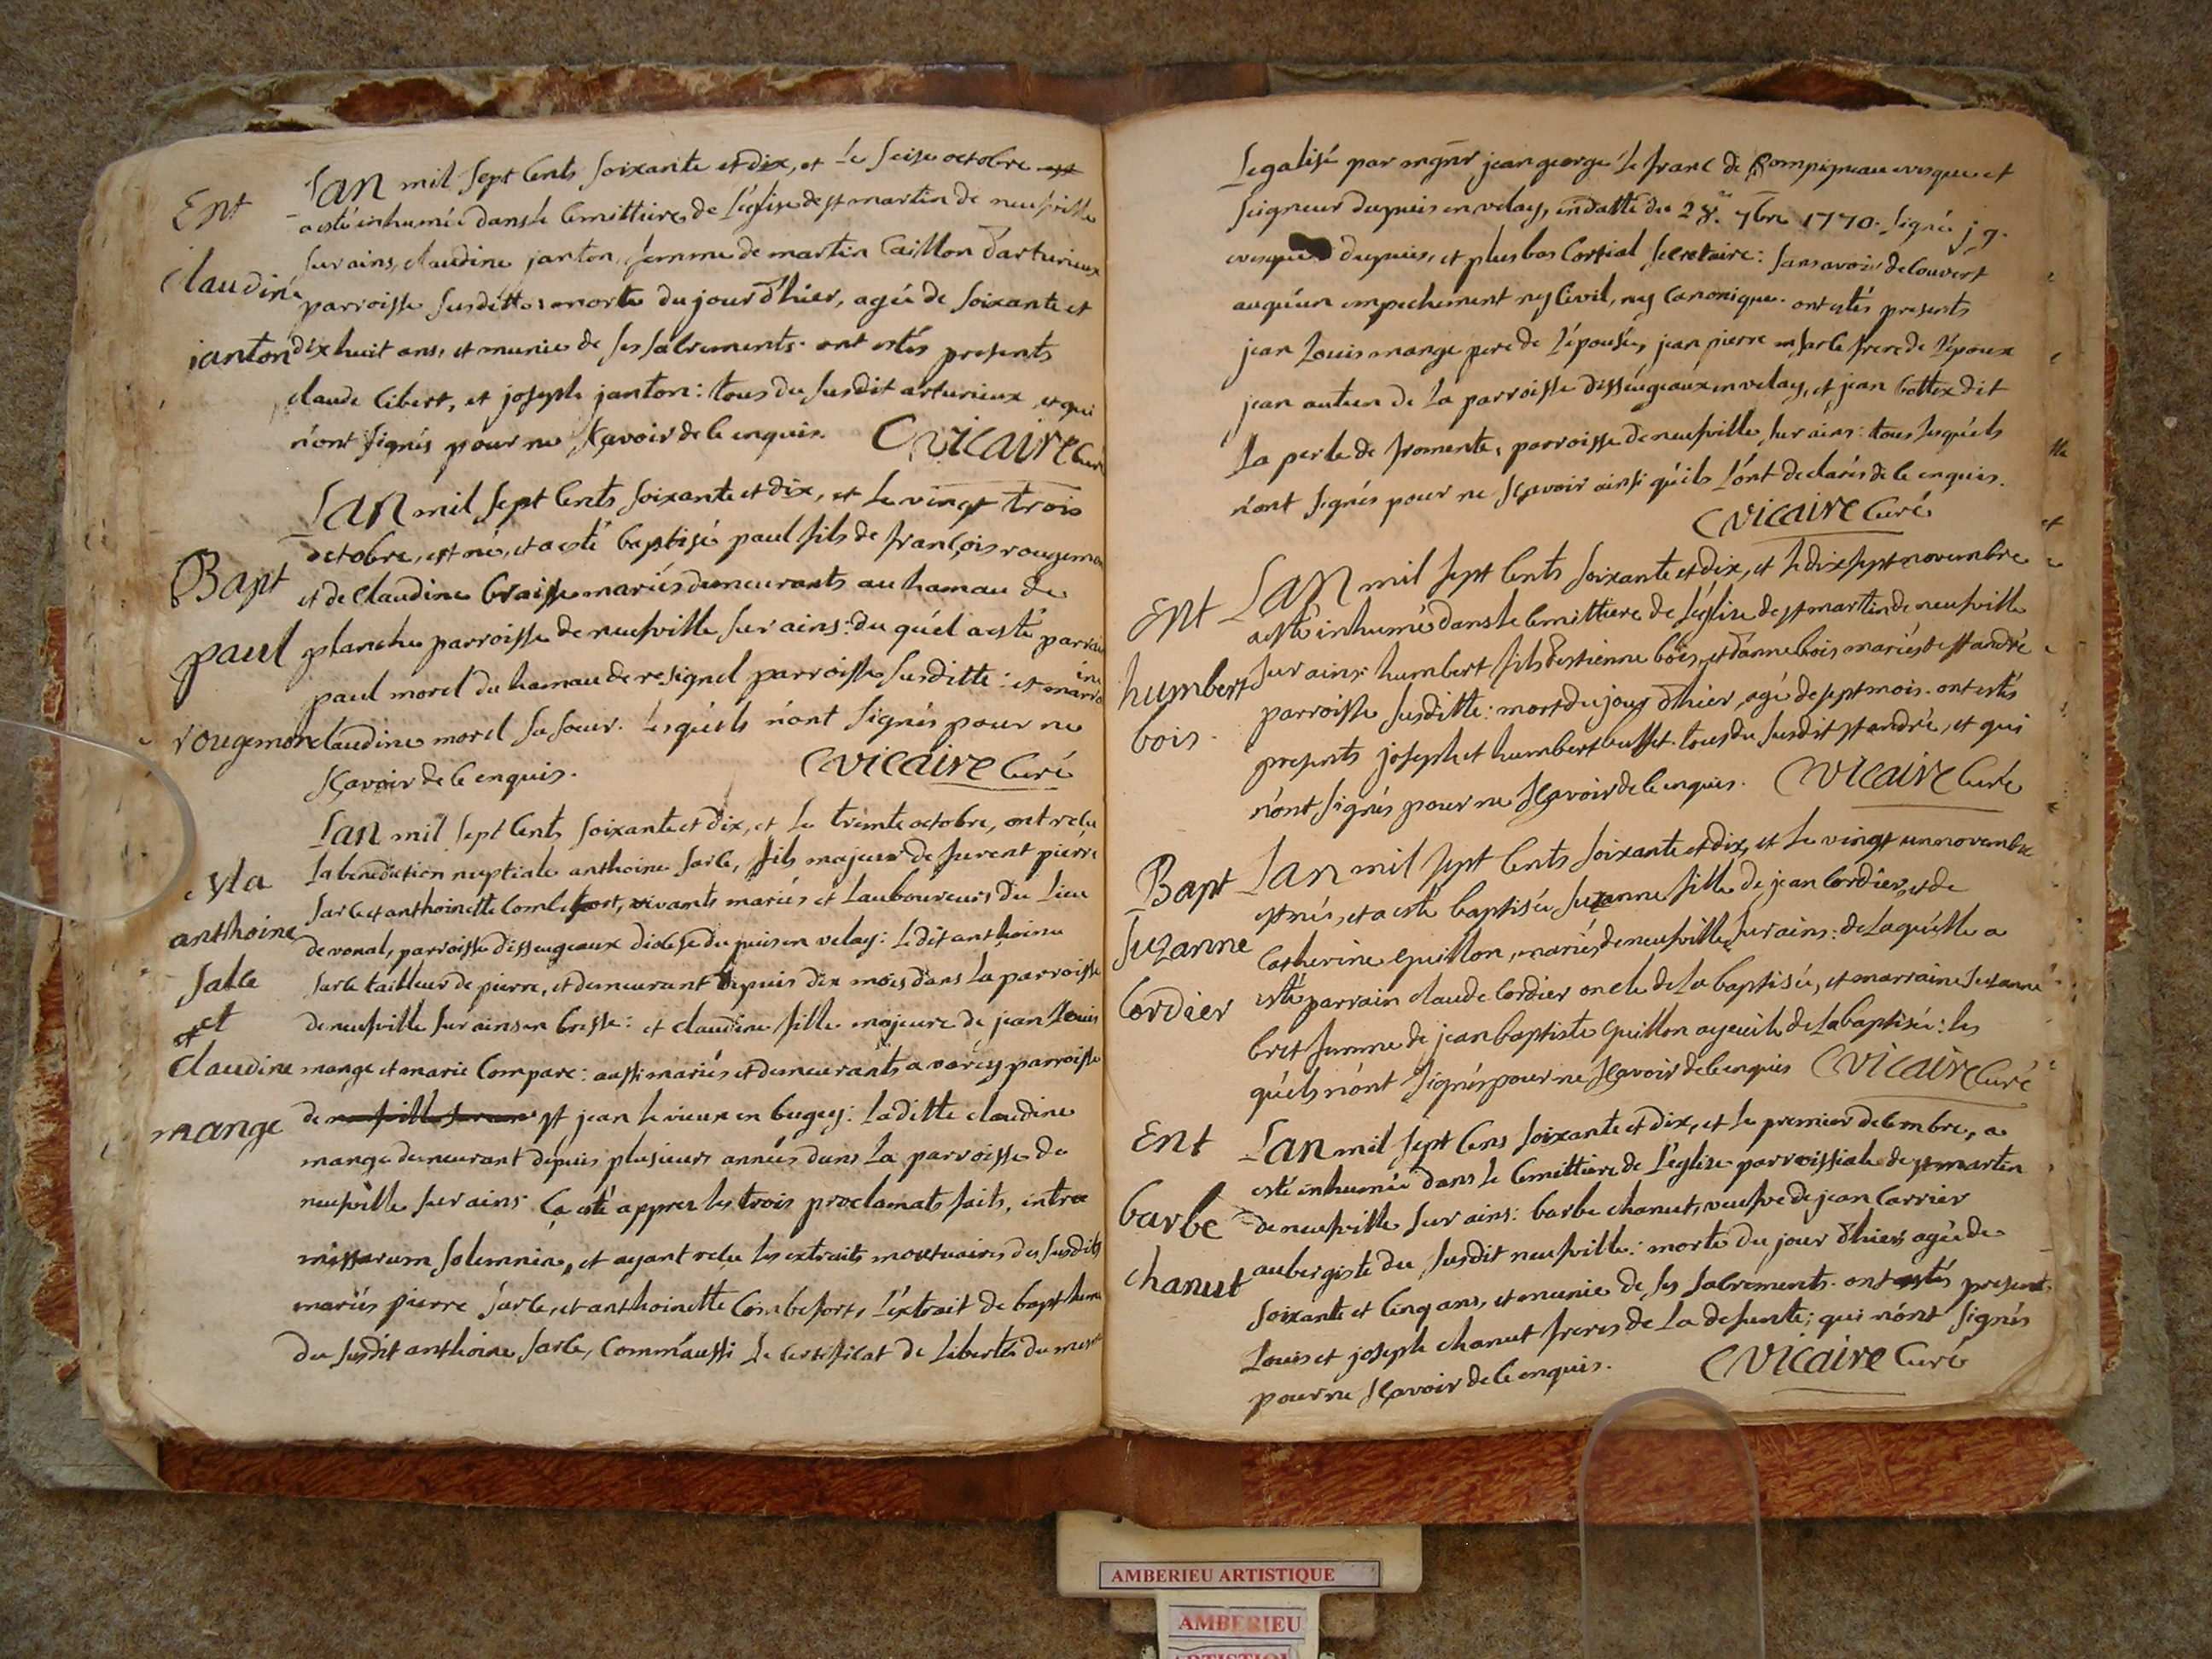 Ent
Claudine
janton
Lan mil sept cents soixante et dix, et le seise octobre est
a esté inhumée dans le cemittiere de l'église de st martin de neufville
sur ains, claudine janton, femme de martin Caillon d'arturieux
parroisse susditte: morte du jour d'hier, agée de soixante et
dix huit ans, et munie de ses sacrements. ont estés presents
claude Cibert, et joseph janton: tous du susdit arturieux, et qui
n'ont signés pour ne sçavoir de ce enquis. C vicaire Curé
Bapt
paul
rougemon
Lan mil sept cents soixante et dix, et le vingt trois
octobre, est né, et a esté baptisé paul fils de françois rougemon
et de claudine braisse mariés demeurants au hameau de
planche parroisse de neufville sur ains: du quél a esté parrain
paul morel du hameau de resignel parroisse susditte: et marraine
claudine morel sa soeur. lesquéls n'ont signés pour ne
sçavoir de ce enquis. C vicaire Curé
anthoine
sarce
et
claudine
mange
Lan mil sept cents soixante et dix, et le trente octobre, ont reçu
la benediction nuptiale anthoine sarce, fils majeur de furent pierre
sarce et anthoinette Combefort, vivants mariés et Laboureurs du Lieu
de vonal, parroisse d'isseugeaux diocese du puis en velay: le dit anthoine
sarce tailleur de pierre, et demeurant depuis dix mois dans la parroisse
de neufville sur ains en bresse: et claudine fille majeure de jean Louis
mange et marie Compare: aussi mariés et demeurants a varey parroisse
de neufville sur ains st jean le vieux en bugey: la ditte claudine
mange demeurant dépuis plusieurs années dans la parroisse de
neufville sur ains. Ça esté apprez les trois proclamats faits, intra
missarum solemnia, et ayant reçu les extraits mortuaires des susdits
mariés pierre sarce, et anthoinette Combefort, l'extrait de baptheme
du susdit anthoine sarce, comm'aussi le certificat de Liberté du mesme
Legalisé par mgnr jean george le franc de pompignan evesque et
seigneur du puis en velay, en datte du 28e 7bre 1770. signé j g.
evesque du puis, et plus bas Cortial secretaire: sans avoir decouvert
auqu'un empechement ny Civil, ny Canonique. ont estés presents
jean Louis mange pere de l'épousée, jean pierre sarce frere de l'époux
jean autun de la parroisse d'isseugeaux en velay, et jean bottex dit
la perle de fromente, parroisse de neufville sur ains: tous lesquéls
n'ont signés pour ne sçavoir ainsi qu'ils l'ont declarés de ce enquis.
C vicaire Curé
Ent
humbert
bois
Lan mil sept cents soixante et dix, et le dix sept novembre
a esté inhumé dans le cemittiere de l'église de st martin de neufville
sur ains: humbert fils d'estienne bois, et d'anne bois mariés de st andré
parroisse susditte: mort du jour d'hier, agé de sept mois. ont estés
presents joseph et humbert buffet. tous du susdit st andré, et qui
n'ont signés pour ne sçavoir de ce enquis. C vicaire Curé
Bapt
suzanne
Cordier
Lan mil sept cents soixante et dix, et le vingt un novembre
est née, et a esté baptisée suzanne fille de jean Cordier, et de
Catherine guillon, mariés de neufville sur ains: de laquélle a
esté parrain claude Cordier oncle de la baptisée, et marraine suzanne
bret femme de jean baptiste guillon ayeuile de la baptisée: les
quéls n'ont signés pour ne sçavoir de ce enquis C vicaire Curé
Ent
barbe
chanut
Lan mil sept cens soixante et dix, et le premier decembre, a
esté inhumée dans le Cemittiere de l'église parroissiale de st martin
de neufville sur ains: barbe chanut, veufve de jean Carrier
aubergiste du susdit neufville: morte du jour d'hier, agée de
soixante et Cinq ans, et munie de ses sacrements. ont estés presents
Louis et joseph chanut freres de la defunte; qui n'ont signés
pour ne sçavoir de ce enquis. C vicaire Curé
AMBERIEU ARTISTIQUE
AMBERIEU
ARTISTIQUE